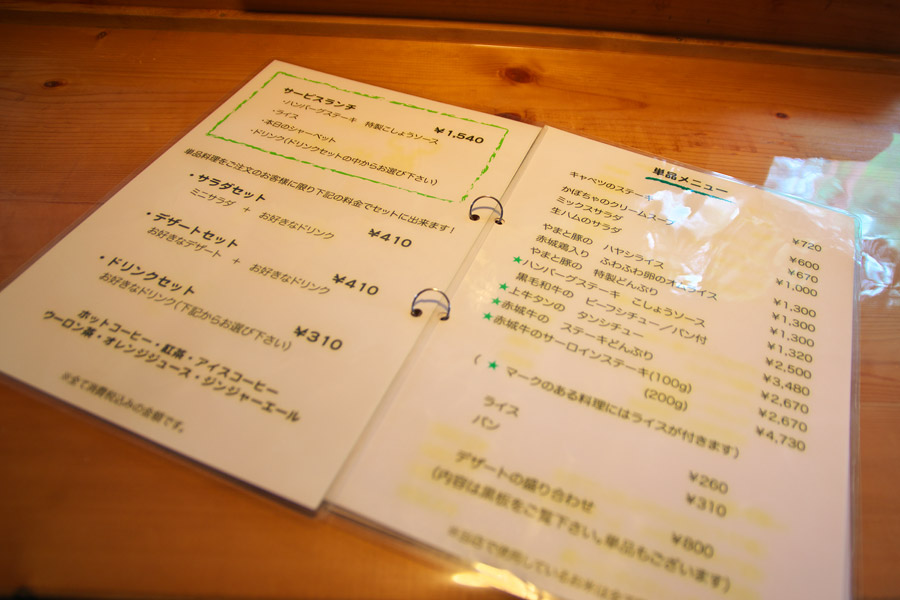 サービスランチ
・ハンバーグステーキ 特製こしょうソース ¥1,540
・ライス
・本日のシャーベット
・ドリンク(ドリンクセットの中からお選び下さい)
単品料理をご注文のお客様に限り下記の料金でセットに出来ます!
・サラダセット ¥410
ミニサラダ + お好きなドリンク
・デザートセット ¥410
お好きなデザート + お好きなドリンク
・ドリンクセット ¥310
お好きなドリンク(下記からお選び下さい)
ホットコーヒー・紅茶・アイスコーヒー
ウーロン茶・オレンジジュース・ジンジャーエール
※全て消費税込みの金額です。
単品メニュー
キャベツのステーキ ¥720
かぼちゃのクリームスープ ¥600
ミックスサラダ ¥670
生ハムのサラダ ¥1,000
やまと豚の ハヤシライス ¥1,300
赤城鶏入り ふわふわ卵のオムライス ¥1,300
やまと豚の 特製どんぶり ¥1,300
★ハンバーグステーキ こしょうソース ¥1,320
黒毛和牛の ビーフシチュー/パン付 ¥2,500
★上牛タンの タンシチュー ¥3,480
★赤城牛の ステーキどんぶり ¥2,670
★赤城牛のサーロインステーキ(100g) ¥2,670
(200g) ¥4,730
( ★ マークのある料理にはライスが付きます)
ライス ¥260
パン ¥310
デザートの盛り合わせ ¥800
(内容は黒板をご覧下さい。単品もございます)
※当店で使用しているお米は全て